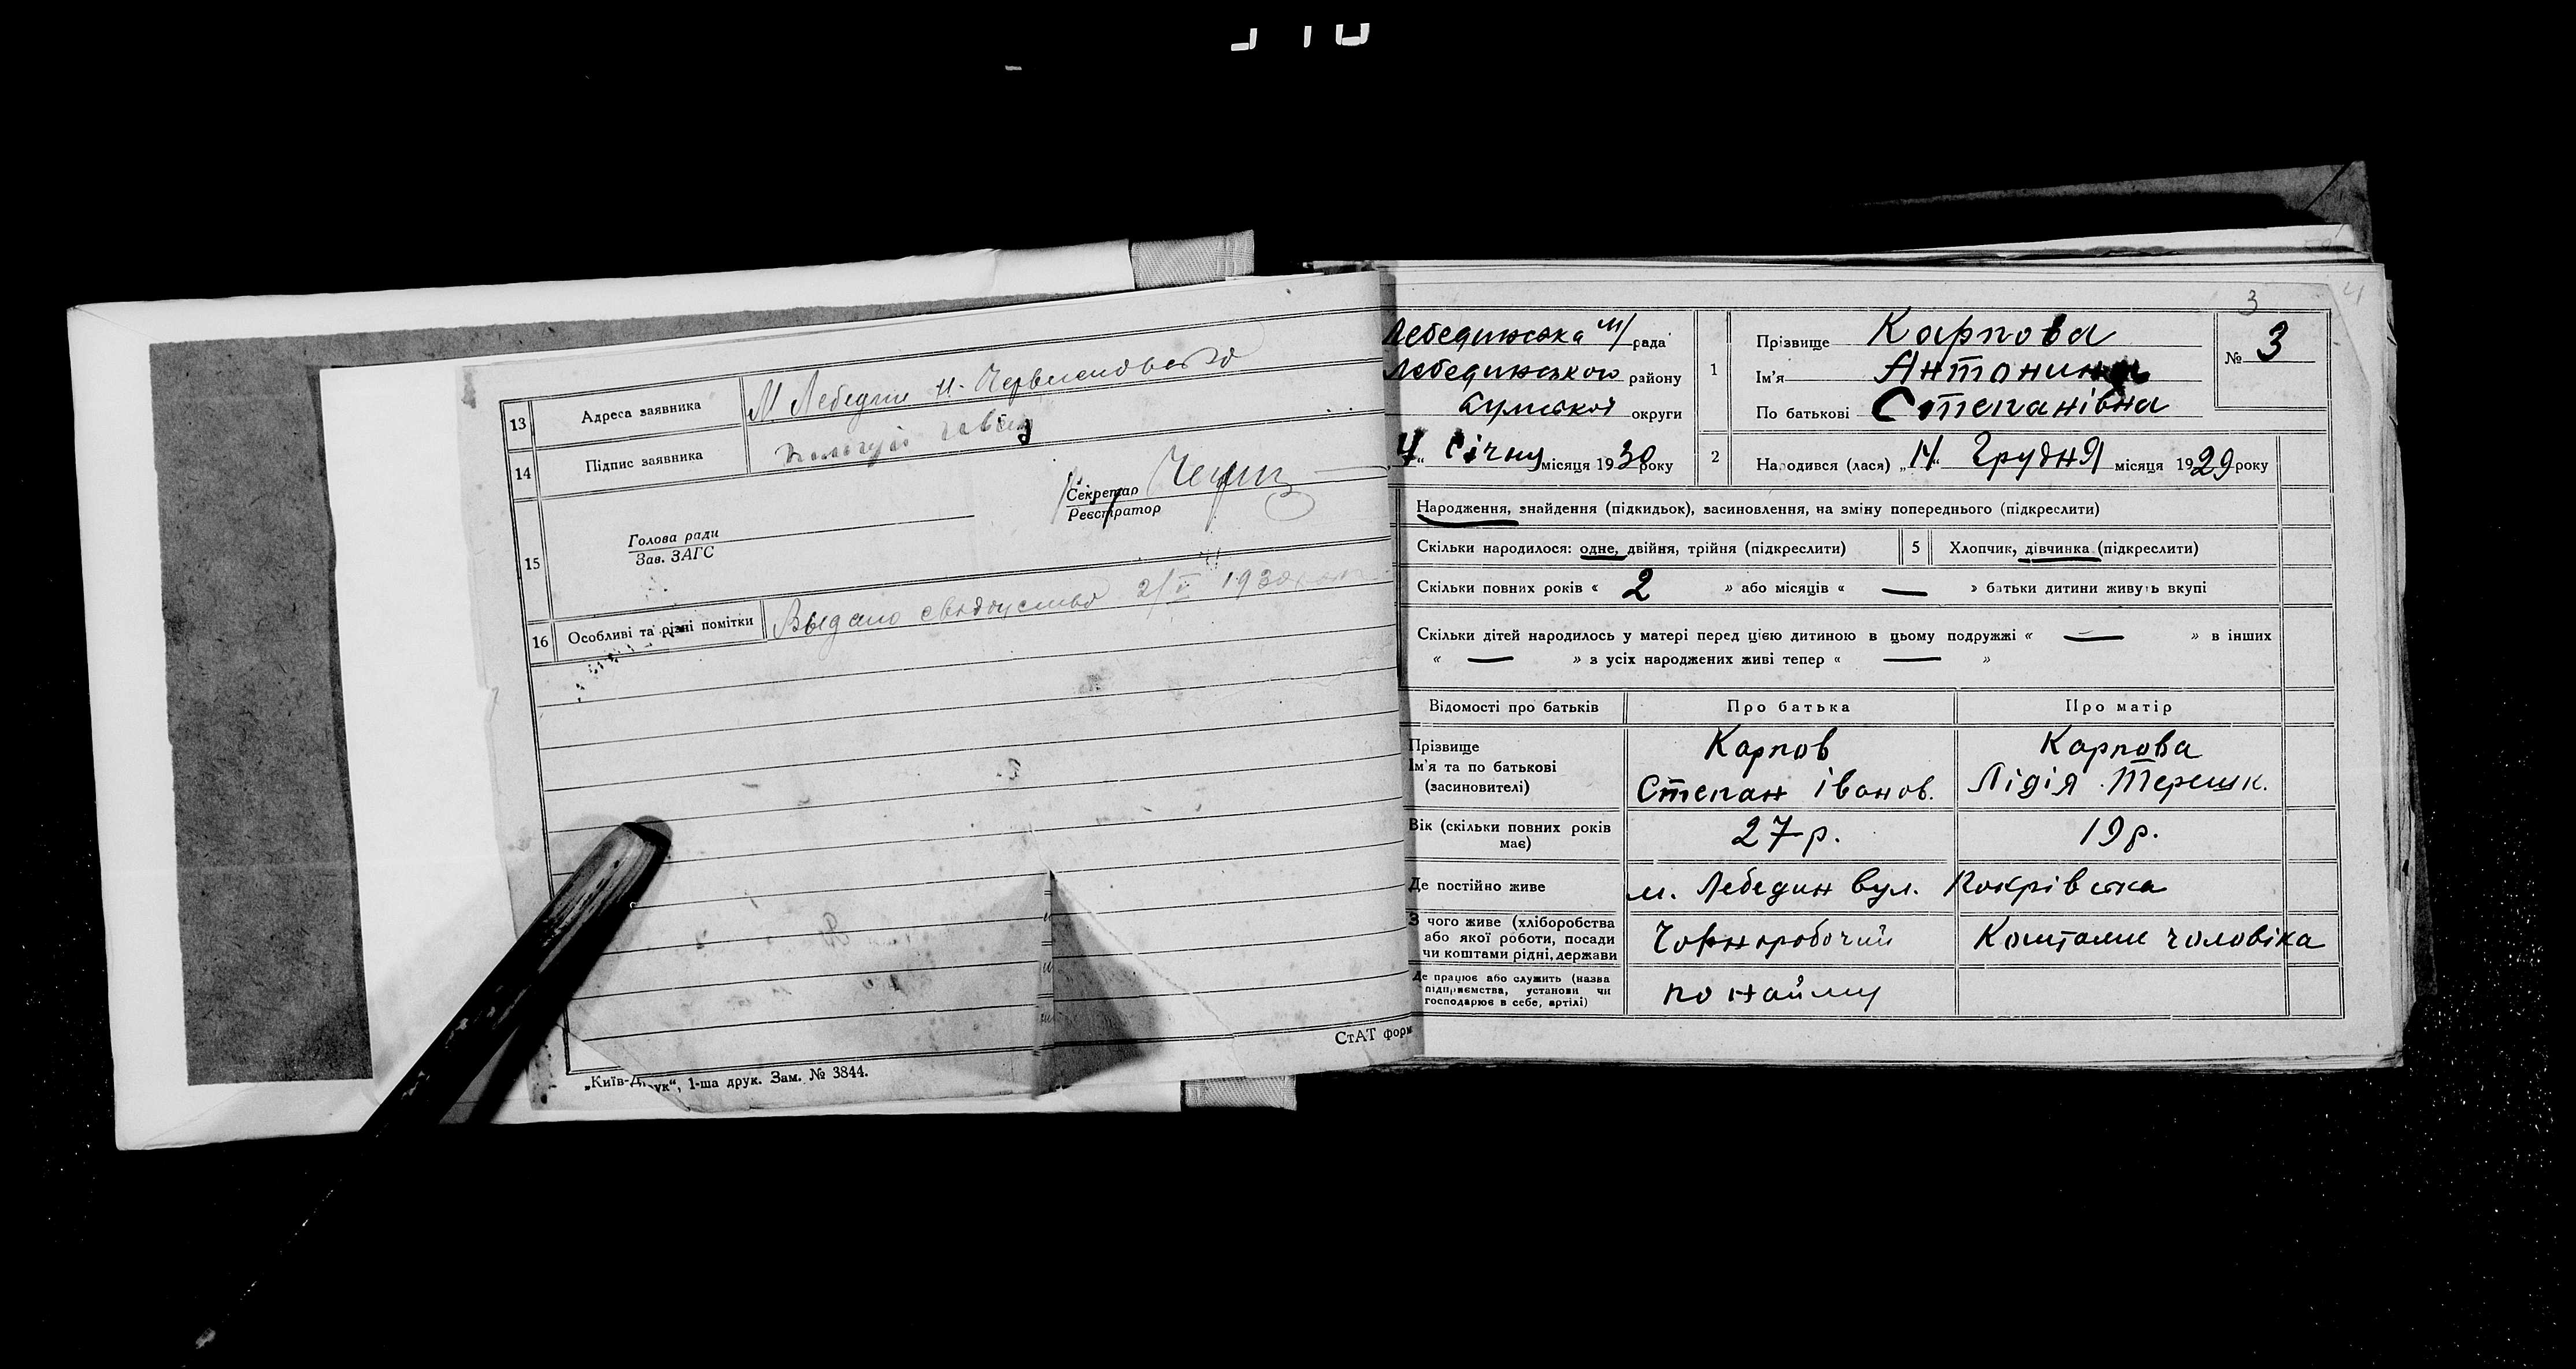 13 Адреса заявника М Лебедин
14 Підпис заявника
Секретар
Реєстратор
Голова ради
Зав. ЗАГС
15
16 Особливі та різні помітки Выдано свидоцство 1930
СтАТ форм
„Київ-Друк“, 1-ша друк. Зам. № 3844.
3
4
Лебединська м/рада
Лебединського району
Сумської округи
4 " Січня місяця 1930 року
1 Прізвище Карпова
Ім'я Антонина
По батькові Степанівна
№ 3
2 Народився (лася) „14“ Грудня місяця 1929 року
Народження, знайдення (підкидьок), засиновлення, на зміну попереднього (підкреслити)
Скільки народилося: одне, двійня, трійня (підкреслити) 5 Хлопчик, дівчинка (підкреслити)
Скільки повних років « 2 » або місяців « — » батьки дитини живуть вкупі
Скільки дітей народилось у матері перед цією дитиною в цьому подружжі « — » в інших
« — » з усіх народжених живі тепер « — »
Відомості про батьків Про батька Про матір
Прізвище Карпов Карпова
Ім'я та по батькові
(засиновителі) Степан Іванов. Лідія Терешк.
Вік (скільки повних років 27 р. 19 р.
має)
Де постійно живе м. Лебедин вул. Покрівська
З чого живе (хліборобства
або якої роботи, посади Чорноробочий Коштами чоловіка
чи коштами рідні, держави
Де працює або служить (назва
підприємства, установи чи по найму
господарює в себе, артілі)